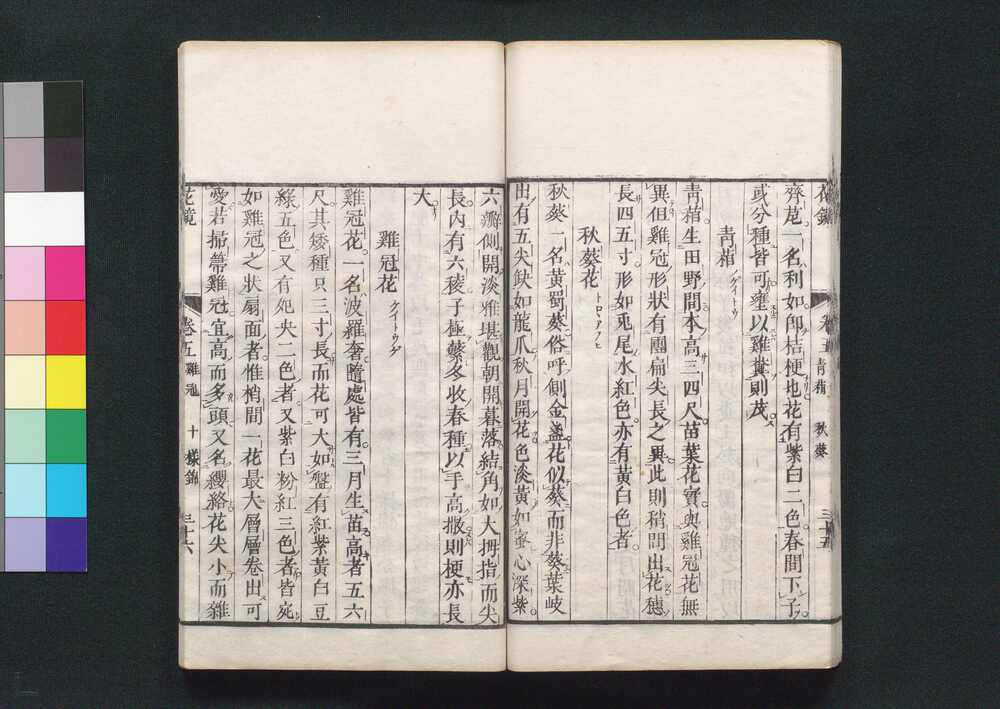 花鏡 卷五 青葙 秋葵 三十五
齊苨一名利如卽桔梗也花有紫白二色春間下子
或分種皆可壅以雞糞則茂
青葙 ノゲイトウ
青葙生田野間本高三四尺苗葉花實與雞冠花無
異但雞冠形狀有團扁尖長之異此則稍間出花穗
長四五寸形如兎尾水紅色亦有黃白色者
秋葵花 トロヽアフヒ
秋葵一名黃蜀葵俗呼側金盞花似葵而非葵葉岐
出有五尖缺如龍爪秋月開花色淡黃如蜜心深紫
六瓣側開淡雅堪觀朝開暮落結角如大拇指而尖
長內有六稜子極蘩冬收春種以手高撒則梗亦長
大
雞冠花 ケイトウゲ
雞冠花一名波羅奢隨處皆有三月生苗高者五六
尺其矮種只三寸長而花可大如盤有紅紫黃白豆
綠五色又有鴛央二色者又紫白粉紅三色者皆宛
如雞冠之狀扇面者惟梢間一花最大層層卷出可
愛若掃箒雞冠宜高而多頭又名纓絡花尖小而雜
花鏡 卷五 雞冠 十樣錦 三十六